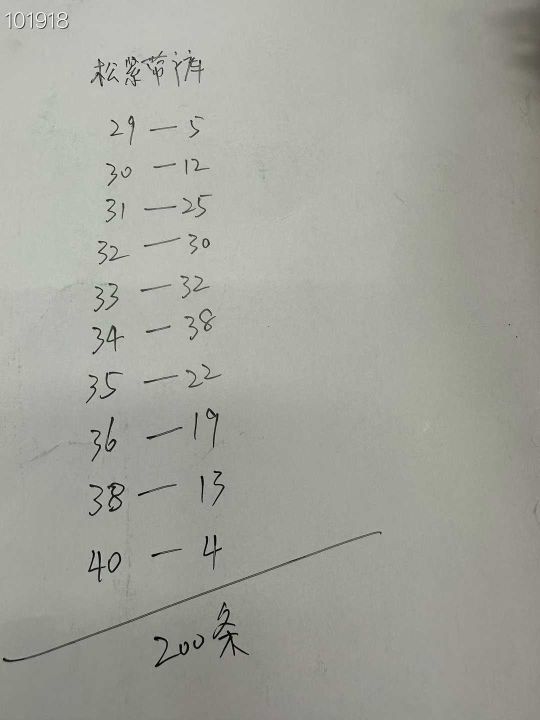 101918
松紧带裤
29 — 5
30 — 12
31 — 25
32 — 30
33 — 32
34 — 38
35 — 22
36 — 19
38 — 13
40 — 4
200条